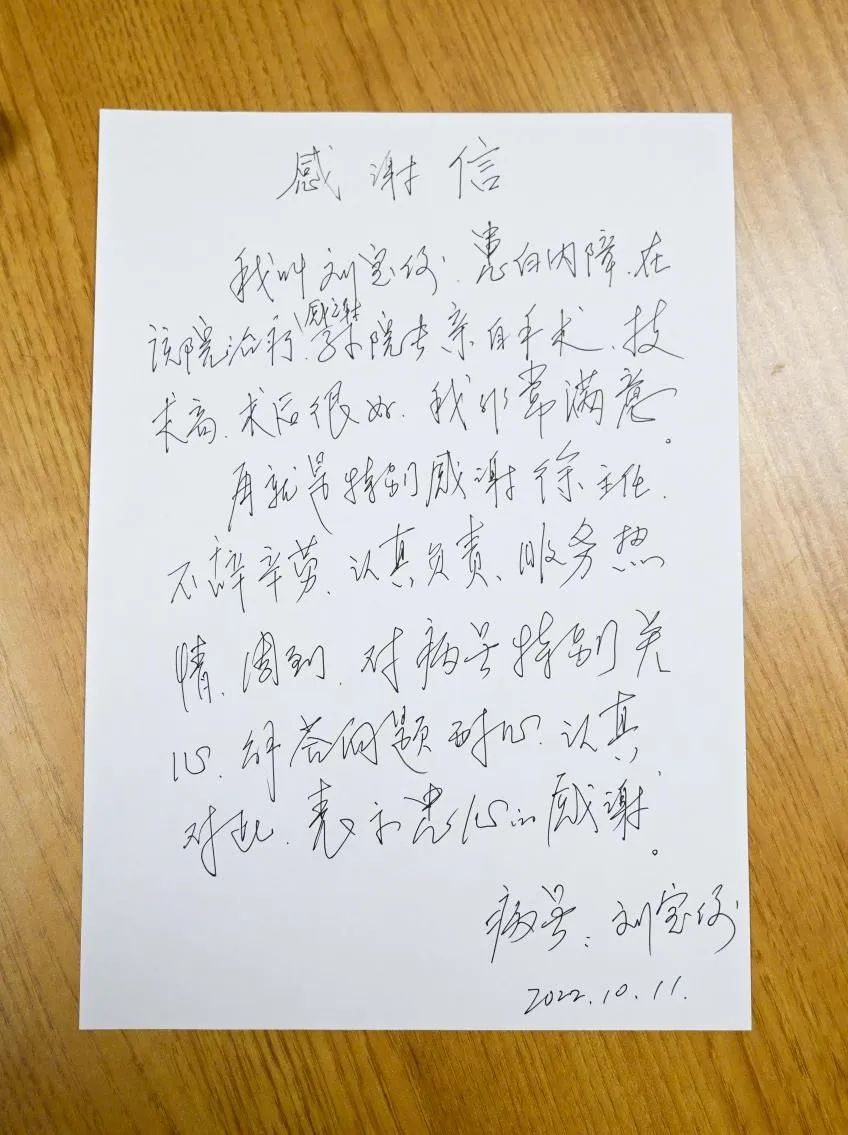 感谢信
我叫刘宝俊.患白内障.在
该院治疗.感谢院长亲自手术、技
术高.术后很好.我非常满意。
再就是特别感谢徐主任.
不辞辛劳、认真负责、服务热
情、周到.对病号特别关
心.解答问题耐心.认真
对此.表示衷心的感谢。
病号:刘宝俊
2022.10.11.